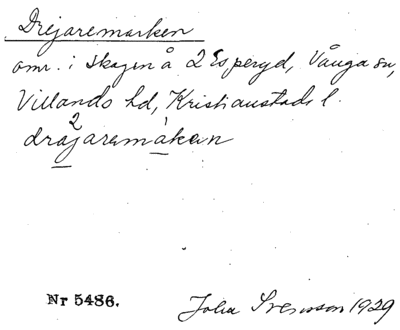 Drejaremarken
omr. i skogen å 2 Esperyd, Vånga sn,
Villands hd, Kristianstads l.
2
dräjaremáken
Nr 5486.
John Svensson 1929